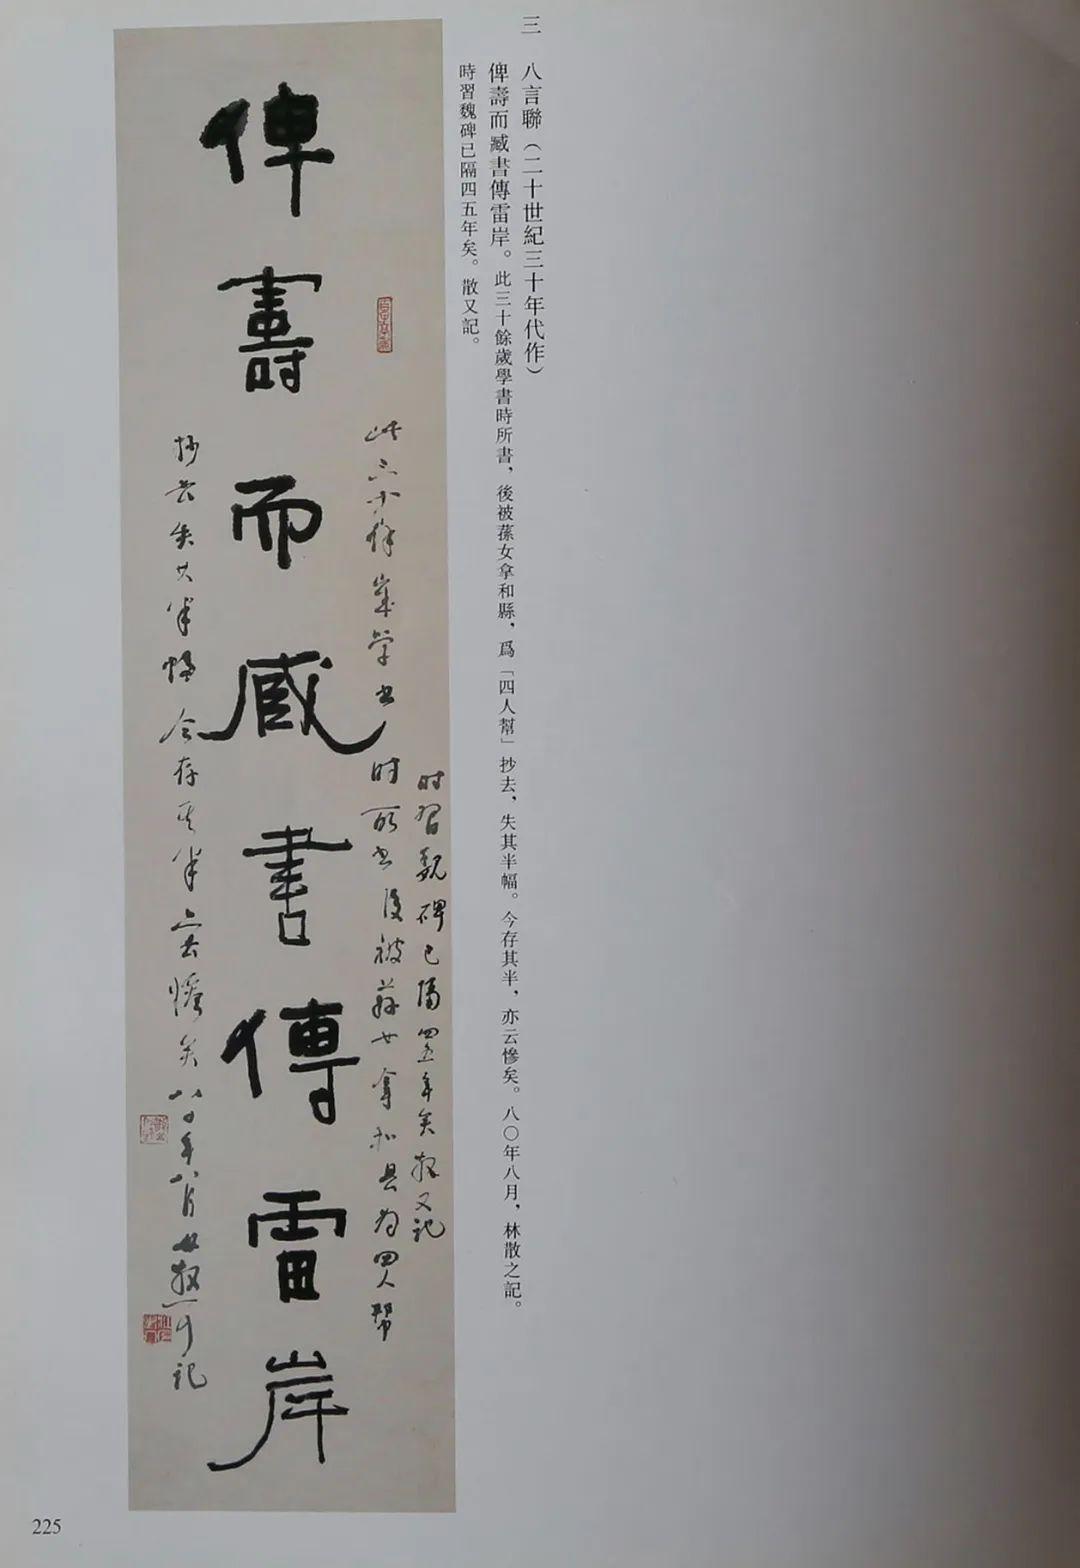 三
八言聯（二十世紀三十年代作）
俾壽而臧書傳雷岸。此三十餘歲學書時所書，後被蓀女拿和縣，爲「四人幫」抄去，失其半幅。今存其半，亦云慘矣。八〇年八月，林散之記。
時習魏碑已隔四五年矣。散又記。
时習魏碑已隔四五年矣散又記
此三十餘歲学书时所书後被蓀女拿和县为四人幫
俾壽而臧書傳雷岸
抄去失其半幅今存其半亦云慘矣八〇年八月林散之記
225